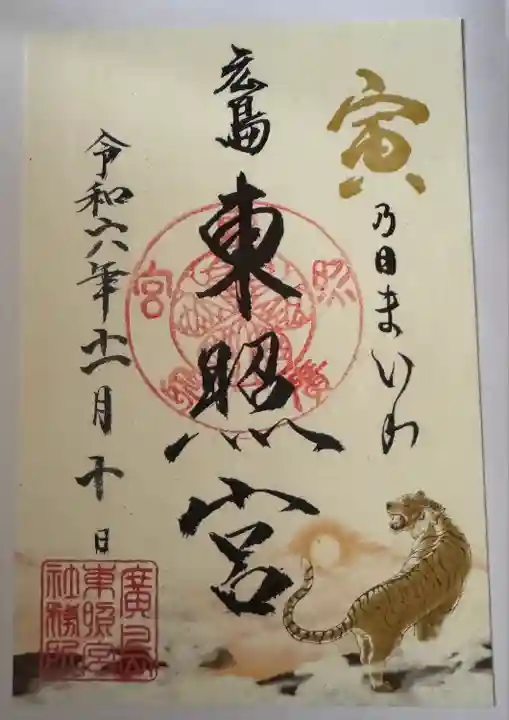 寅乃日まいり
広島
東照宮
令和六年十一月十日
廣島
東照宮
社務所